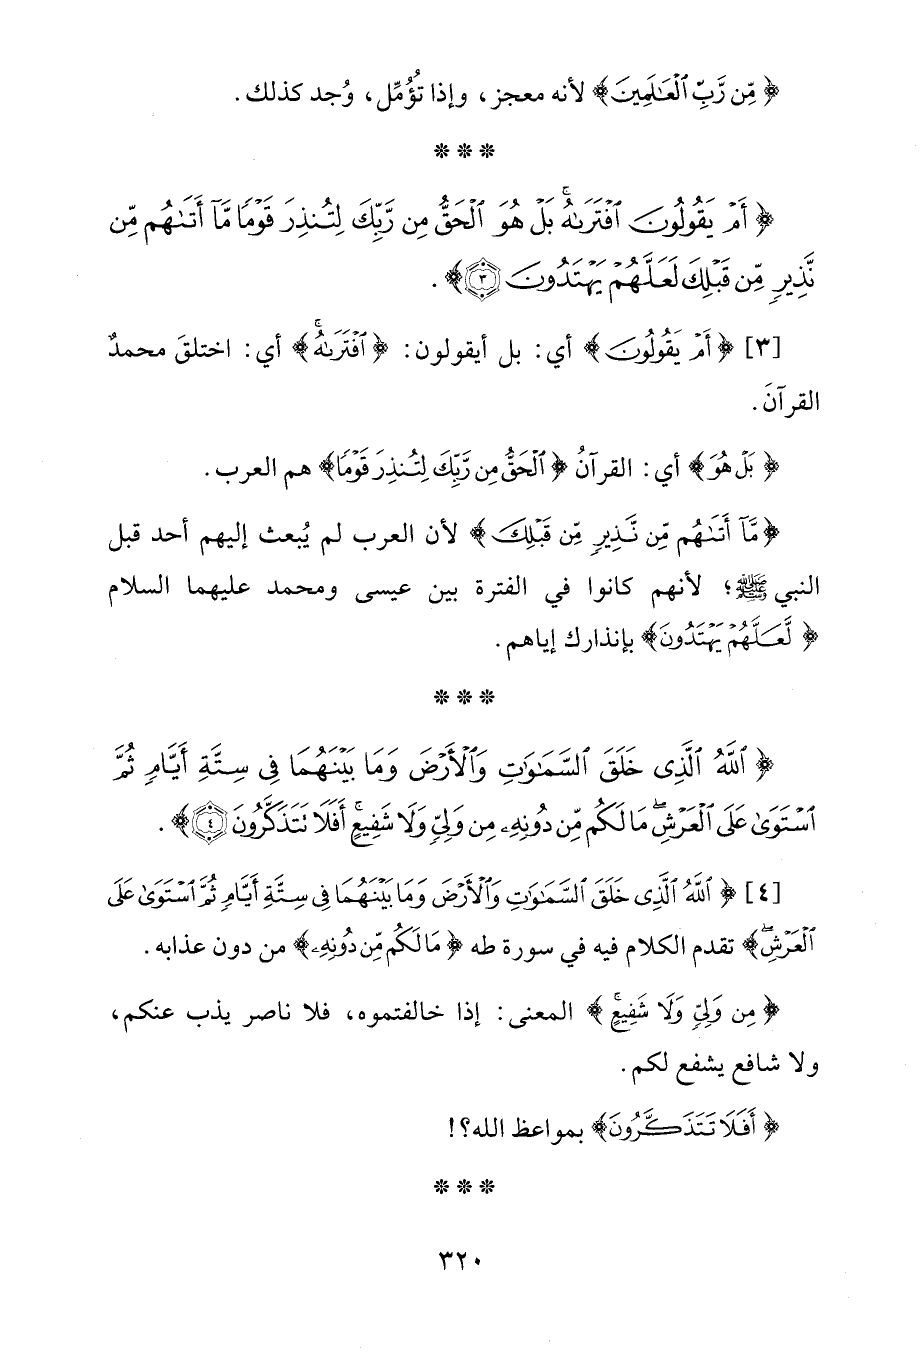 ﴿ مِّن رَّبِّ ٱلْعَـٰلَمِينَ﴾ لأنه معجز، وإذا تُؤُمِّل، وُجد كذلك.
* * *
﴿ أَمْ يَقُولُونَ ٱفْتَرَىٰهُ ۚ بَلْ هُوَ ٱلْحَقُّ مِن رَّبِّكَ لِتُنذِرَ قَوْمًا مَّآ أَتَىٰهُم مِّن
نَّذِيرٍ مِّن قَبْلِكَ لَعَلَّهُمْ يَهْتَدُونَ ﴿٣﴾﴾ .
[٣] ﴿ أَمْ يَقُولُونَ ﴾ أي: بل أيقولون: ﴿ ٱفْتَرَىٰهُ ۚ﴾ أي: اختلقَ محمدٌ
القرآنَ.
﴿ بَلْ هُوَ﴾ أي: القرآنُ ﴿ ٱلْحَقُّ مِن رَّبِّكَ لِتُنذِرَ قَوْمًا﴾ هم العرب.
﴿مَّآ أَتَىٰهُم مِّن نَّذِيرٍ مِّن قَبْلِكَ ﴾ لأن العرب لم يُبعث إليهم أحد قبل
النبي ﷺ؛ لأنهم كانوا في الفترة بين عيسى ومحمد عليهما السلام
﴿ لَعَلَّهُمْ يَهْتَدُونَ﴾ بإنذارك إياهم.
* * *
﴿ ٱللَّهُ ٱلَّذِى خَلَقَ ٱلسَّمَـٰوَٰتِ وَٱلْأَرْضَ وَمَا بَيْنَهُمَا فِى سِتَّةِ أَيَّامٍ ثُمَّ
ٱسْتَوَىٰ عَلَى ٱلْعَرْشِ ۖ مَا لَكُم مِّن دُونِهِۦ مِن وَلِىٍّ وَلَا شَفِيعٍ ۚ أَفَلَا تَتَذَكَّرُونَ ﴿٤﴾﴾ .
[٤] ﴿ ٱللَّهُ ٱلَّذِى خَلَقَ ٱلسَّمَـٰوَٰتِ وَٱلْأَرْضَ وَمَا بَيْنَهُمَا فِى سِتَّةِ أَيَّامٍ ثُمَّ ٱسْتَوَىٰ عَلَى
ٱلْعَرْشِ ۖ﴾ تقدم الكلام فيه في سورة طه ﴿ مَا لَكُم مِّن دُونِهِۦ﴾ من دون عذابه.
﴿ مِن وَلِىٍّ وَلَا شَفِيعٍ ۚ ﴾ المعنى: إذا خالفتموه، فلا ناصر يذب عنكم،
ولا شافع يشفع لكم.
﴿ أَفَلَا تَتَذَكَّرُونَ﴾ بمواعظ الله؟!
* * *
٣٢٠